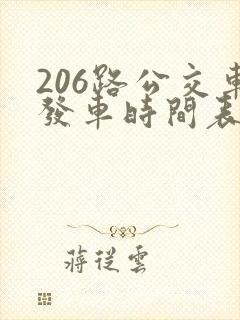 206路公交車
發車時間表
蔣從雲